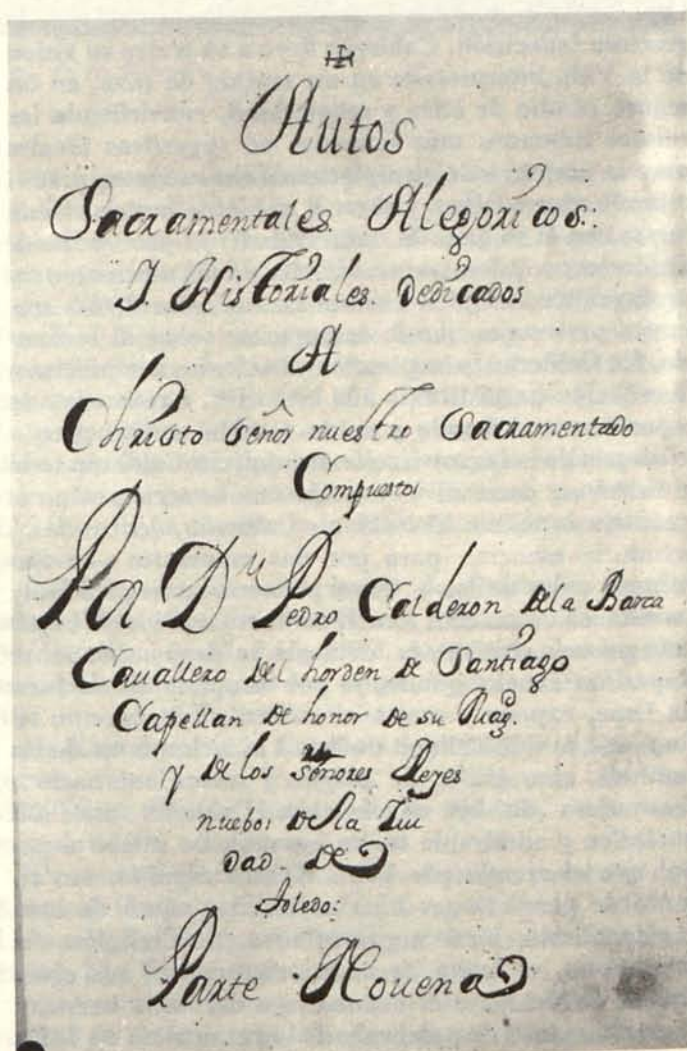 Autos
Sacramentales. Alegoricos:
I. Historiales. Dedicados
A
Christo Señor nuestro Sacramentado
Compuestos
Por Dn Pedro Calderon de la Barca
Cauallero del horden de Santiago
Capellan de honor de su Magd.
y de los señores Reyes
nuebos de la Ziu
dad. de
Toledo:
Parte Nouena